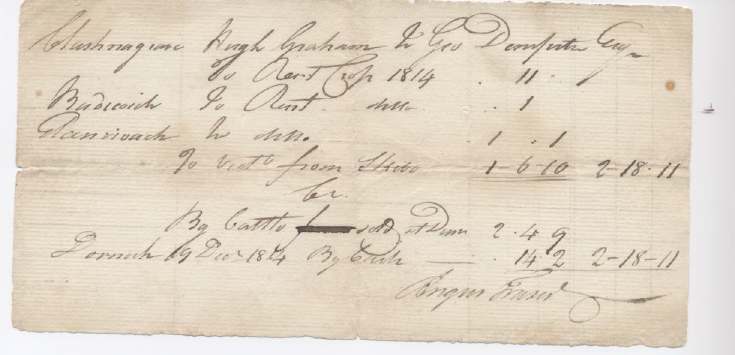 Clashnagrave Hugh Graham To Geo Dempster Esqr
To Rent Crop 1814 . 11 . 1
To Rent ditto . . 1
To ditto 1 . 1
To vict from Skibo 1-6-10 2-18-11
Cr.
By Cattle sold at Dam 2.4 9
Dornoch 19 Decr 1814 By Cash . 14.2 2-18-11
Angus Fraser